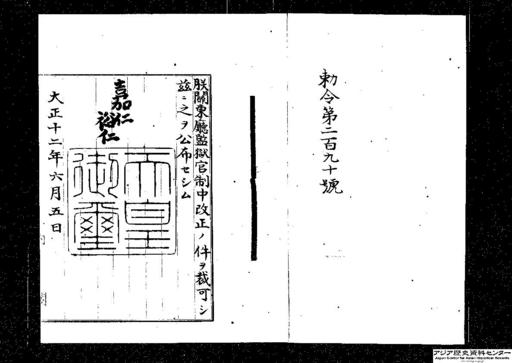 勅令第二百九十號
朕關東廳監獄官制中改正ノ件ヲ裁可シ
玆ニ之ヲ公布セシム
嘉仁
裕仁
天皇
御璽
大正十二年六月五日
アジア歴史資料センター
Japan Center for Asian Historical Records